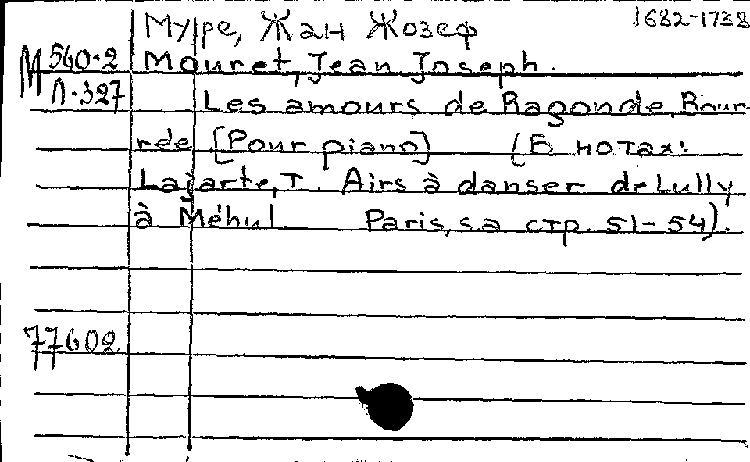 Муре, Жан Жозеф 1682-1738
М 560-2 Mouret, Jean Joseph.
Л-327 Les amours de Ragonde. Bour
rée [Pour piano] (В нотах:
Lajarte, T. Airs à danser de Lully
à Méhul. Paris, s.a стр. 51-54).
77602